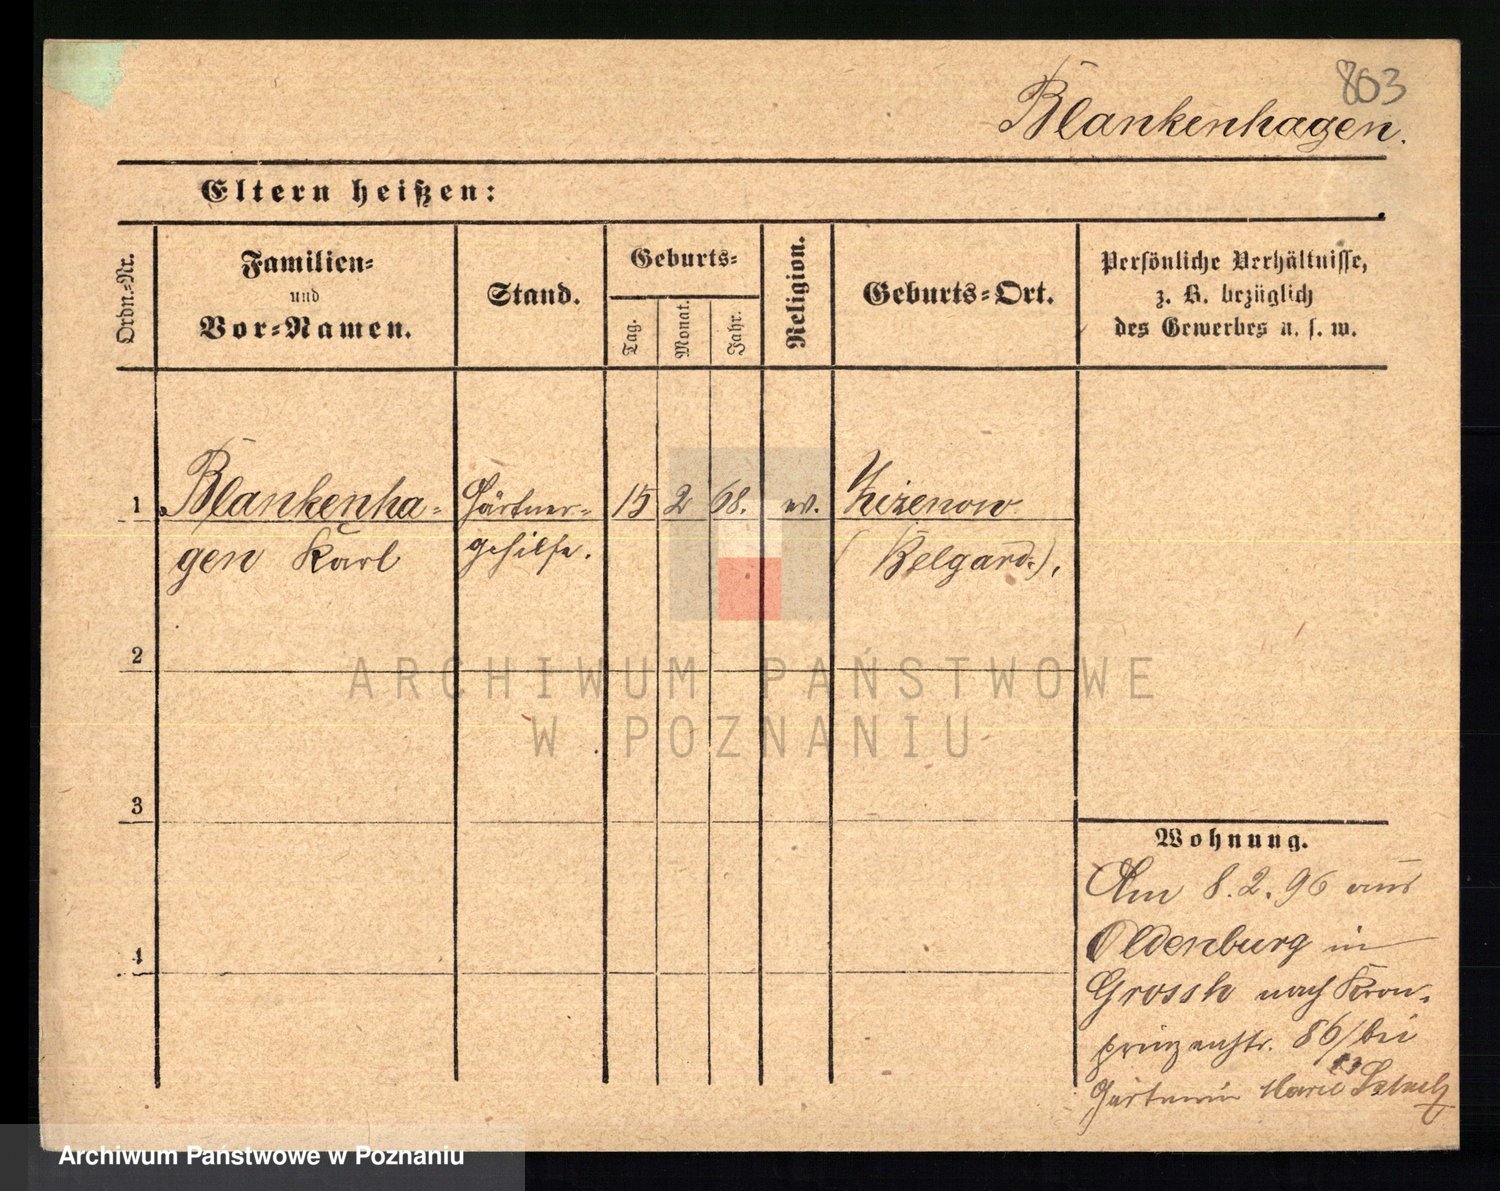 803
Blankenhagen.
Eltern heißen:
Ordn.-Nr.
Familien-
und
Vor-Namen.
Stand.
Geburts-
Tag.
Monat.
Jahr.
Religion.
Geburts-Ort.
Persönliche Verhältnisse,
z. B. bezüglich
des Gewerbes u. s. w.
1 Blankenha- Gärtner- 15 2 68. ev. Zizenow
gen Karl gehilfe. (Belgard.),
2
3
4
Wohnung.
Am 8.2.96 aus
Oldenburg in
Grossh nach Kron-
prinzenstr. 86/bei
Gärtnerin Marie
ARCHIWUM PAŃSTWOWE
W POZNANIU
Archiwum Państwowe w Poznaniu